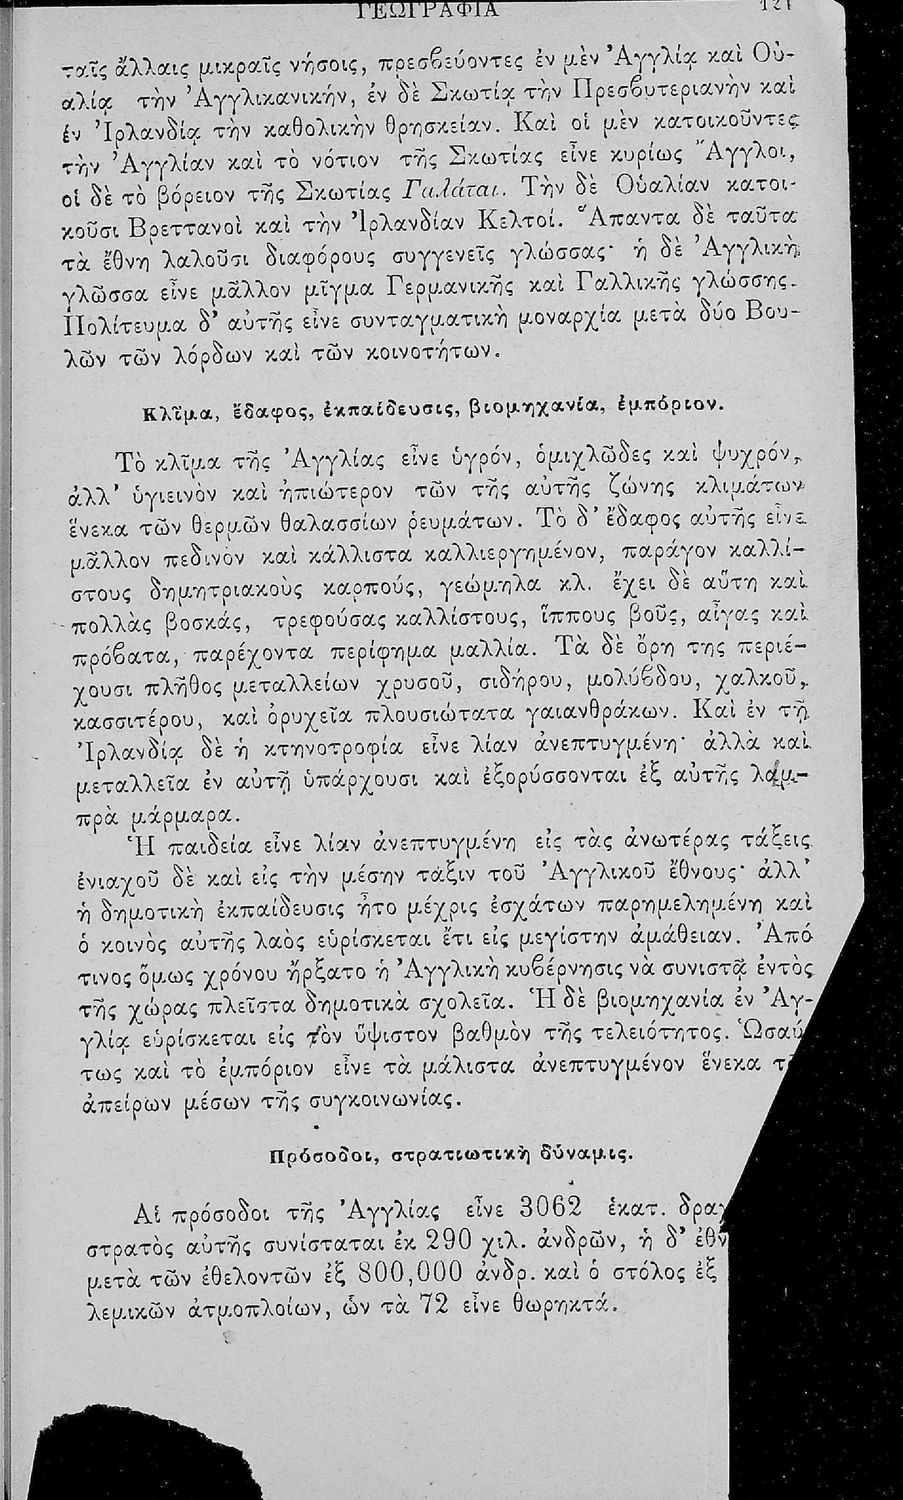 ΓΕΩΓΡΑΦΙΑ
ταῖς ἄλλαις μικραῖς νήσοις, πρεσβεύοντες ἐν μὲν Ἀγγλίᾳ καὶ Οὐ-
αλίᾳ τὴν Ἀγγλικανικήν, ἐν δὲ Σκωτίᾳ τὴν Πρεσβυτεριανὴν καὶ
ἐν Ἰρλανδίᾳ τὴν καθολικὴν θρησκείαν. Καὶ οἱ μὲν κατοικοῦντες
τὴν Ἀγγλίαν καὶ τὸ νότιον τῆς Σκωτίας εἶνε κυρίως Ἄγγλοι,
οἱ δὲ τὸ βόρειον τῆς Σκωτίας Γαλάται. Τὴν δὲ Οὐαλίαν κατοι-
κοῦσι Βρεττανοὶ καὶ τὴν Ἰρλανδίαν Κελτοί. Ἅπαντα δὲ ταῦτα
τὰ ἔθνη λαλοῦσι διαφόρους συγγενεῖς γλώσσας· ἡ δὲ Ἀγγλικὴ
γλῶσσα εἶνε μᾶλλον μῖγμα Γερμανικῆς καὶ Γαλλικῆς γλώσσης.
Πολίτευμα δ' αὐτῆς εἶνε συνταγματικὴ μοναρχία μετὰ δύο Βου-
λῶν τῶν λόρδων καὶ τῶν κοινοτήτων.
Κλῖμα, ἔδαφος, ἐκπαίδευσις, βιομηχανία, ἐμπόριον.
Τὸ κλῖμα τῆς Ἀγγλίας εἶνε ὑγρόν, ὁμιχλῶδες καὶ ψυχρόν,
ἀλλ' ὑγιεινὸν καὶ ἠπιώτερον τῶν τῆς αὐτῆς ζώνης κλιμάτων
ἕνεκα τῶν θερμῶν θαλασσίων ῥευμάτων. Τὸ δ' ἔδαφος αὐτῆς εἶνε
μᾶλλον πεδινὸν καὶ κάλλιστα καλλιεργημένον, παράγον καλλί-
στους δημητριακοὺς καρπούς, γεώμηλα κλ. ἔχει δὲ αὕτη καὶ
πολλὰς βοσκάς, τρεφούσας καλλίστους, ἵππους βοῦς, αἶγας καὶ
πρόβατα, παρέχοντα περίφημα μαλλία. Τὰ δὲ ὄρη της περιέ-
χουσι πλῆθος μεταλλείων χρυσοῦ, σιδήρου, μολύβδου, χαλκοῦ,
κασσιτέρου, καὶ ὀρυχεῖα πλουσιώτατα γαιανθράκων. Καὶ ἐν τῇ
Ἰρλανδίᾳ δὲ ἡ κτηνοτροφία εἶνε λίαν ἀνεπτυγμένη· ἀλλὰ καὶ
μεταλλεῖα ἐν αὐτῇ ὑπάρχουσι καὶ ἐξορύσσονται ἐξ αὐτῆς λαμ-
πρὰ μάρμαρα.
Ἡ παιδεία εἶνε λίαν ἀνεπτυγμένη εἰς τὰς ἀνωτέρας τάξεις
ἐνιαχοῦ δὲ καὶ εἰς τὴν μέσην τάξιν τοῦ Ἀγγλικοῦ ἔθνους· ἀλλ'
ἡ δημοτικὴ ἐκπαίδευσις ἦτο μέχρις ἐσχάτων παρημελημένη καὶ
ὁ κοινὸς αὐτῆς λαὸς εὑρίσκεται ἔτι εἰς μεγίστην ἀμάθειαν. Ἀπό
τινος ὅμως χρόνου ἤρξατο ἡ Ἀγγλικὴ κυβέρνησις νὰ συνιστᾷ ἐντὸς
τῆς χώρας πλεῖστα δημοτικὰ σχολεῖα. Ἡ δὲ βιομηχανία ἐν Ἀγ-
γλίᾳ εὑρίσκεται εἰς τὸν ὕψιστον βαθμὸν τῆς τελειότητος. Ὡσαύ
τως καὶ τὸ ἐμπόριον εἶνε τὰ μάλιστα ἀνεπτυγμένον ἕνεκα
ἀπείρων μέσων τῆς συγκοινωνίας.
Πρόσοδοι, στρατιωτικὴ δύναμις.
Αἱ πρόσοδοι τῆς Ἀγγλίας εἶνε 3062 ἑκατ.
στρατὸς αὐτῆς συνίσταται ἐκ 290 χιλ. ἀνδρῶν, ἡ δ'
μετὰ τῶν ἐθελοντῶν ἐξ 800,000 ἀνδρ. καὶ ὁ στόλος ἐξ
λεμικῶν ἀτμοπλοίων, ὧν τὰ 72 εἶνε θωρηκτά.